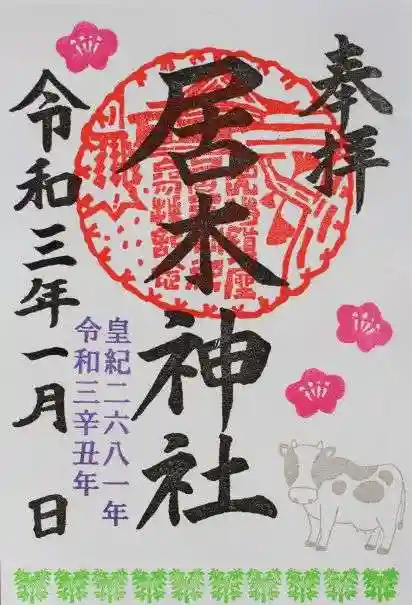 奉拝
居木神社
令和三年一月 日
皇紀二六八一年
令和三辛丑年